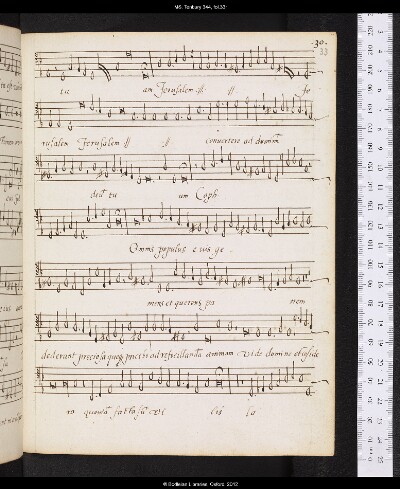 MS. Tenbury 344, fol.33r
.30.
33
tu am Jerusalem :||: || Je
rusalem Jerusalem || :|| convertere ad dominū
deū tu um Caph
Omnis populus e ius ge
mens et querens pa nem
dederunt preciosa queq; pro cibo ad refocilandā animam Vide domine et conside
ra quoniā facta sū vi lis
© Bodleian Libraries, Oxford, 2012